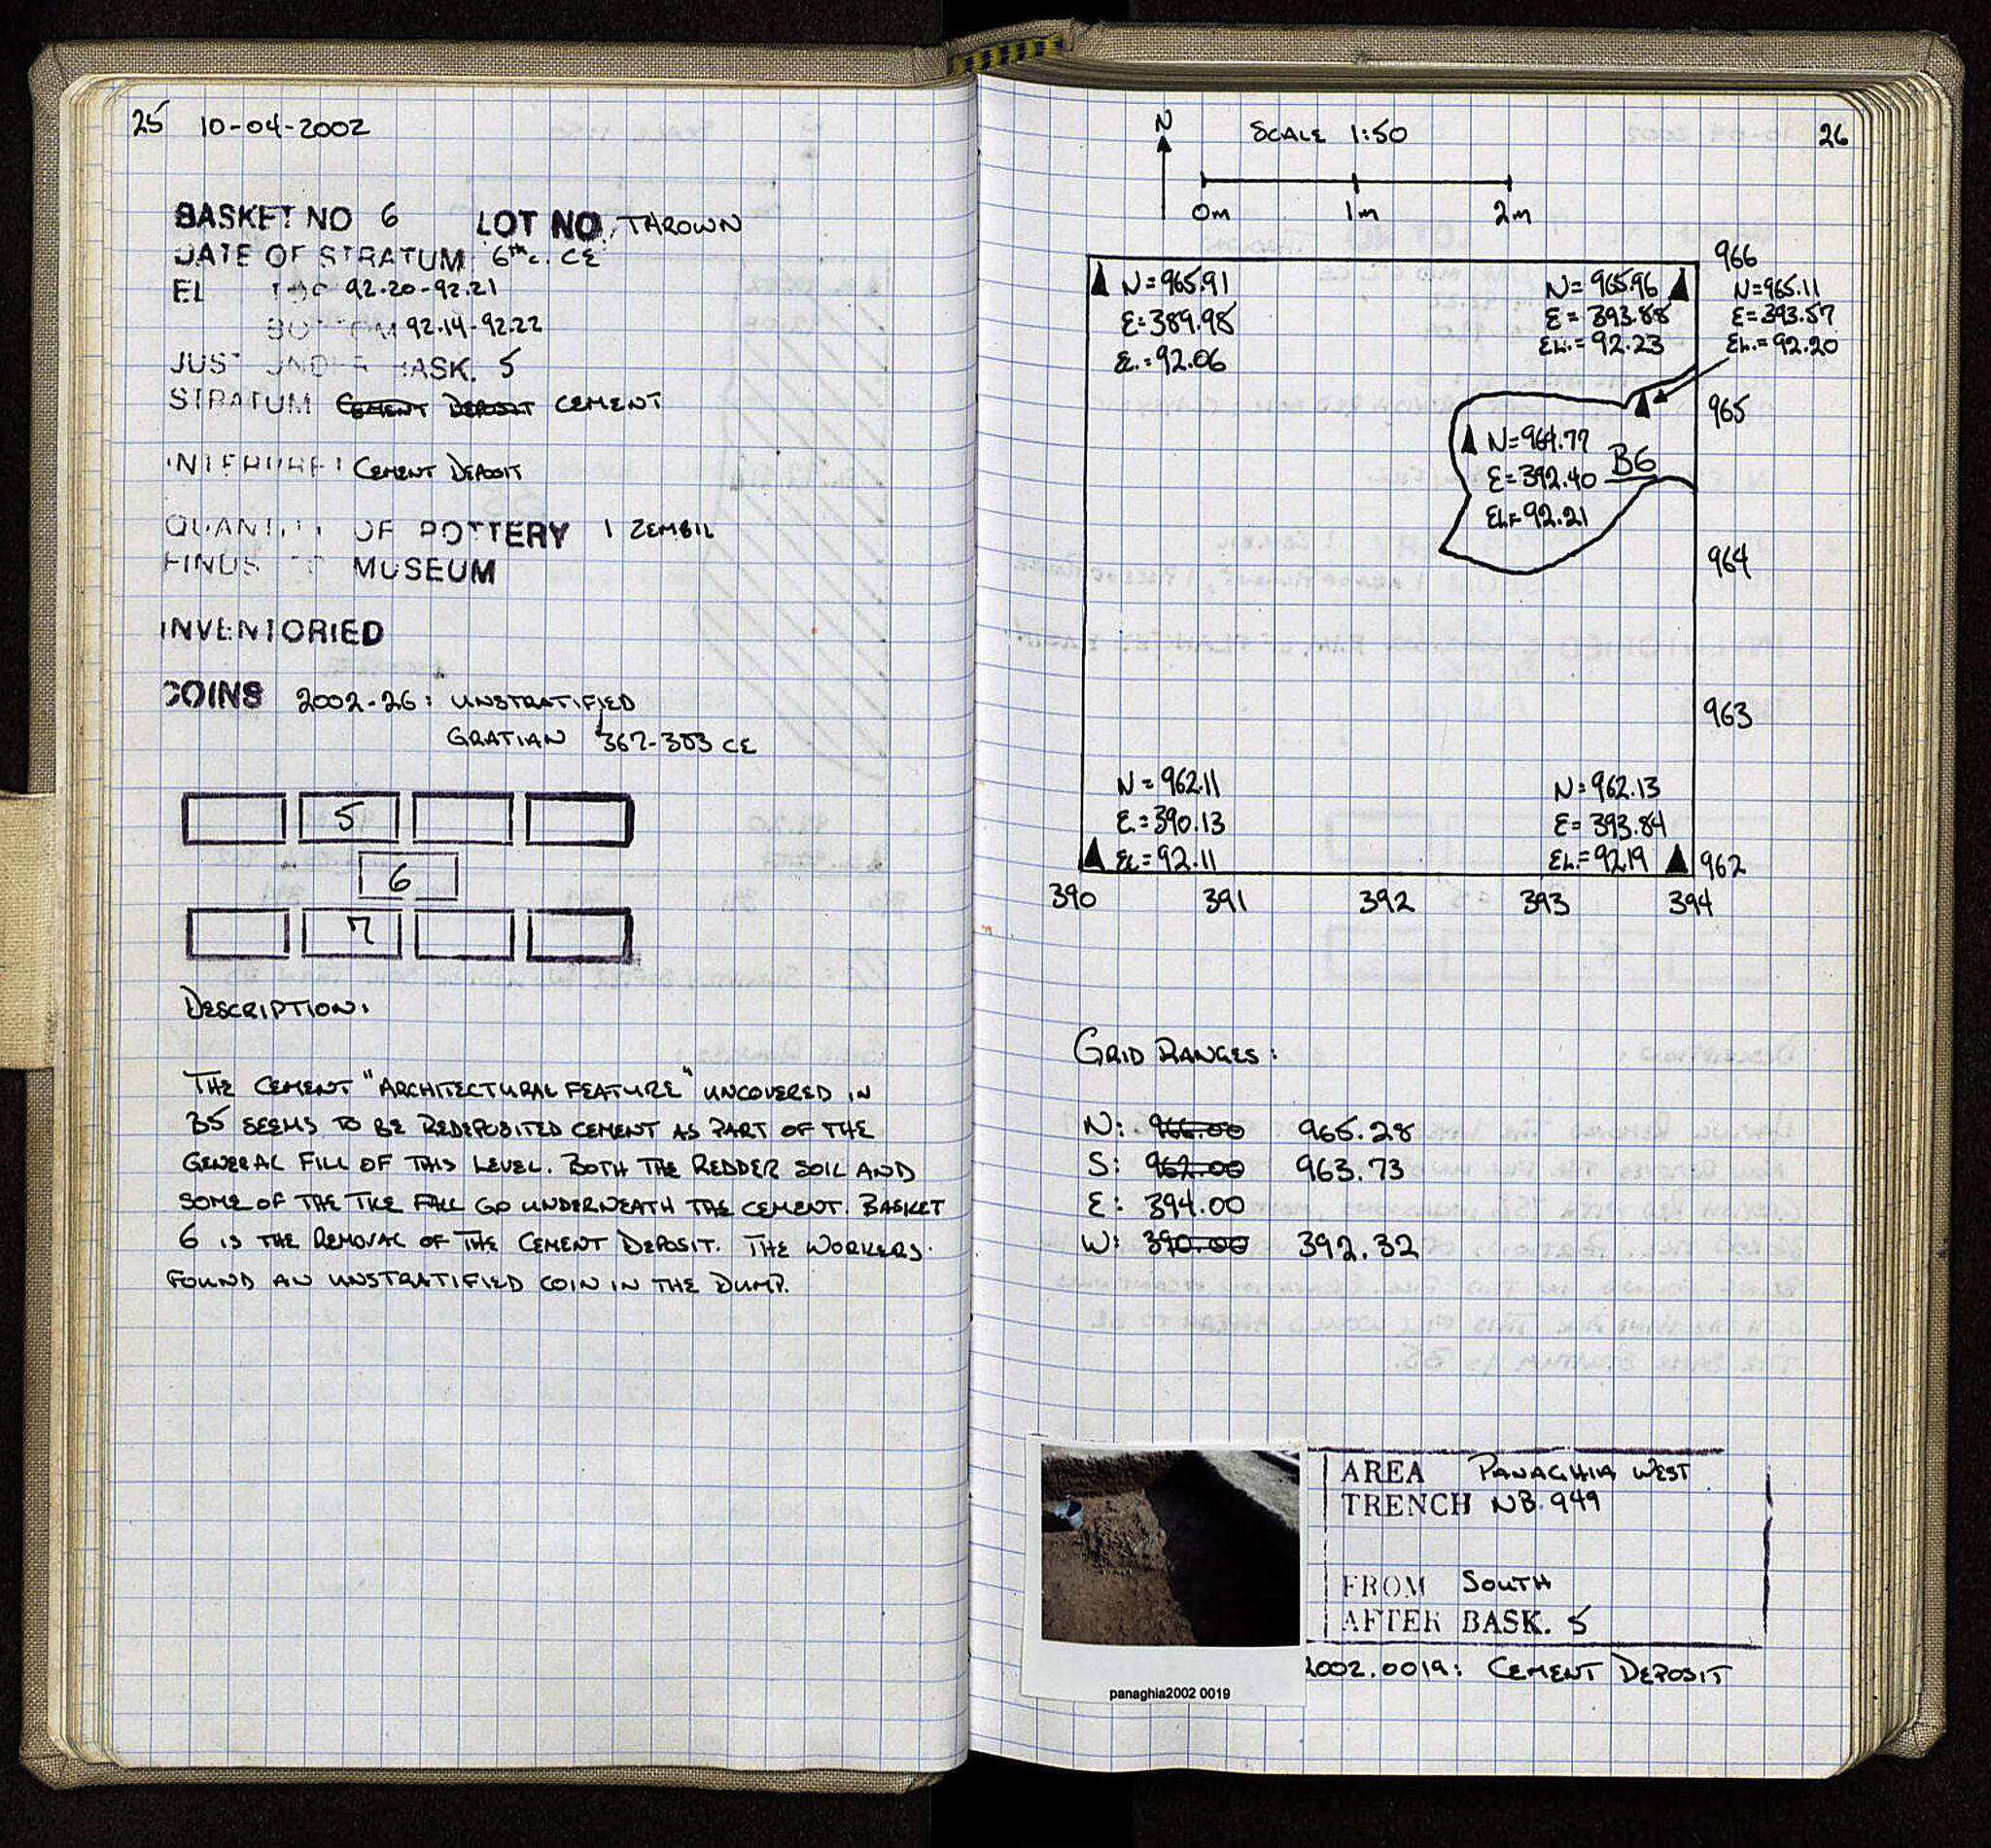 25 10-04-2002
BASKET NO 6 LOT NO. THROWN
DATE OF STRATUM 6th c. CE
EL TOP 92.20-92.21
BOTTOM 92.14-92.22
JUST UNDER BASK. 5
STRATUM CEMENT DEPOSIT CEMENT
INTERPRET CEMENT DEPOSIT
QUANTITY OF POTTERY 1 ZEMBIL
FINDS TO MUSEUM
INVENTORIED
COINS 2002-26: UNSTRATIFIED
GRATIAN 367-383 CE
5
6
7
DESCRIPTION:
THE CEMENT "ARCHITECTURAL FEATURE" UNCOVERED IN
B5 SEEMS TO BE REDEPOSITED CEMENT AS PART OF THE
GENERAL FILL OF THIS LEVEL. BOTH THE REDDER SOIL AND
SOME OF THE TILE FALL GO UNDERNEATH THE CEMENT. BASKET
6 IS THE REMOVAL OF THE CEMENT DEPOSIT. THE WORKERS
FOUND AN UNSTRATIFIED COIN IN THE DUMP.
26
N SCALE 1:50
0m 1m 2m
966
N=965.91
E=389.98
EL.=92.06
N=965.96
E=393.88
EL.=92.23
N=965.11
E=393.57
EL.=92.20
965
N=964.77
E=392.40
EL=92.21
B6
964
963
N=962.11
E.=390.13
EL=92.11
N=962.13
E=393.84
EL.=92.19
962
390 391 392 393 394
GRID RANGES:
N: 966.00 965.28
S: 962.00 963.73
E: 394.00
W: 390.00 392.32
AREA PANAGHIA WEST
TRENCH NB. 949
FROM SOUTH
AFTER BASK. 5
2002.0019: CEMENT DEPOSIT
panaghia2002 0019